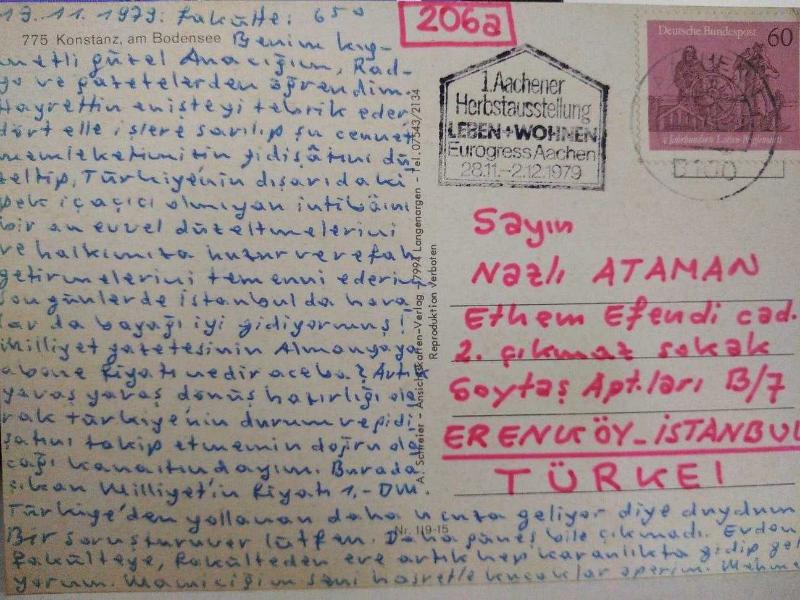 13.11.1979. Fakülte: 650
775 Konstanz, am Bodensee
Benim kıy-
metli güzel Anacığım, Rad-
yo ve gazetelerden öğrendim.
Hayrettin enişteyi tebrik eder
dört elle işlere sarılıp şu cennet
memleketimizin gidişâtını dü
zeltip, Türkiye'nin dışarıdaki
pek içaçıcı olmıyan intibâını
bir an evvel düzeltmelerini
ve halkımıza huzur ve refah
getirmelerini temenni ederim
Son günlerde İstanbul'da hava
lar da bayağı iyi gidiyormuş!
Milliyet gazetesinin Almanyaya
abone fiyatı nedir acaba? Artık
yavaş yavaş dönüş hazırlığı ola
rak Türkiye'nin durum ve gidi
şatını takip etmemin doğru ola
cağı kanaatındayım. Burada
çıkan Milliyet'in fiyatı 1.- DM.
Türkiye'den yollanan daha ucuza geliyor diye duydum
Bir soruşturuver lütfen. Daha güneş bile çıkmadı. Evden
Fakülteye, Fakülteden eve artık hep karanlıkta gidip gel
yorum. Mamiciğim seni hasretle kucaklar öperim. Mehme
206a
1. Aachener
Herbstausstellung
LEBEN+WOHNEN
Eurogress Aachen
28.11.-2.12.1979
Deutsche Bundespost 60
5100
Sayın
Nazlı ATAMAN
Ethem Efendi cad.
2. çıkmaz sokak
Soytaş Apt.ları B/7
ERENKÖY-İSTANBUL
TÜRKEI
A. Schreier - Ansichtskarten-Verlag 7994 Langenargen - Tel. 07543/2134
Reproduktion verboten
Nr. 119-15